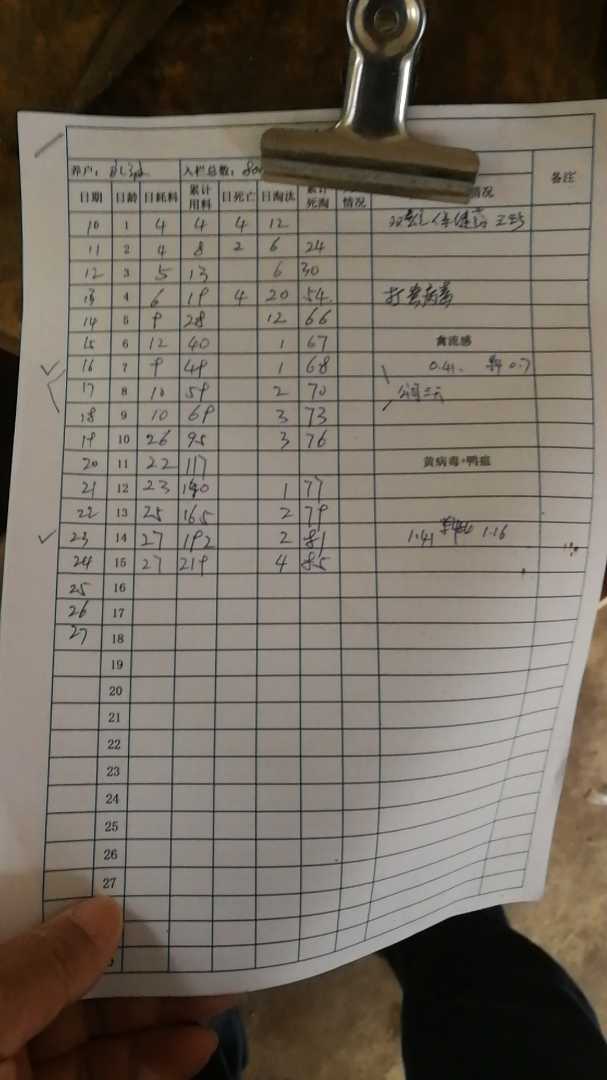 养户： 入栏总数：800
日期 日龄 日耗料 累计用料 日死亡 日淘汰 累计死淘 情况 情况 备注
10 1 4 4 4 12
11 2 4 8 2 6 24
12 3 5 13 6 30
13 4 6 19 4 20 54 打黄病毒
14 5 9 28 12 66
15 6 12 40 1 67 禽流感
16 7 9 49 1 68 0.41 0.7
17 8 10 59 2 70
18 9 10 69 3 73
19 10 26 95 3 76
20 11 22 117 黄病毒+鸭瘟
21 12 23 140 1 77
22 13 25 165 2 79
23 14 27 192 2 81 1.41 1.16
24 15 27 219 4 85
25 16
26 17
27 18
19
20
21
22
23
24
25
26
27